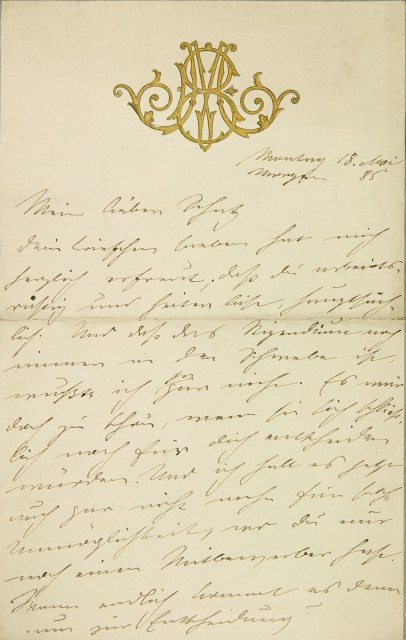 Montag 18. Mai
Morgen 85
Mein lieber Schatz
Dein Briefchen hat mich
herzlich erfreut, daß du arbeits-
und heiter bist, hauptsäch-
lich. Und daß das Stipendium noch
immer in der Schwebe ist,
wußte ich gar nicht. Es wäre
doch zu schön, wenn sie sich schließ-
lich noch für dich entscheiden
würden. Und ich halte es jetzt
auch gar nicht mehr für so
Unmöglichkeit, wo du nur
noch einen Mitbewerber hast.
Wann endlich kommt es denn
nun zur Entscheidung?